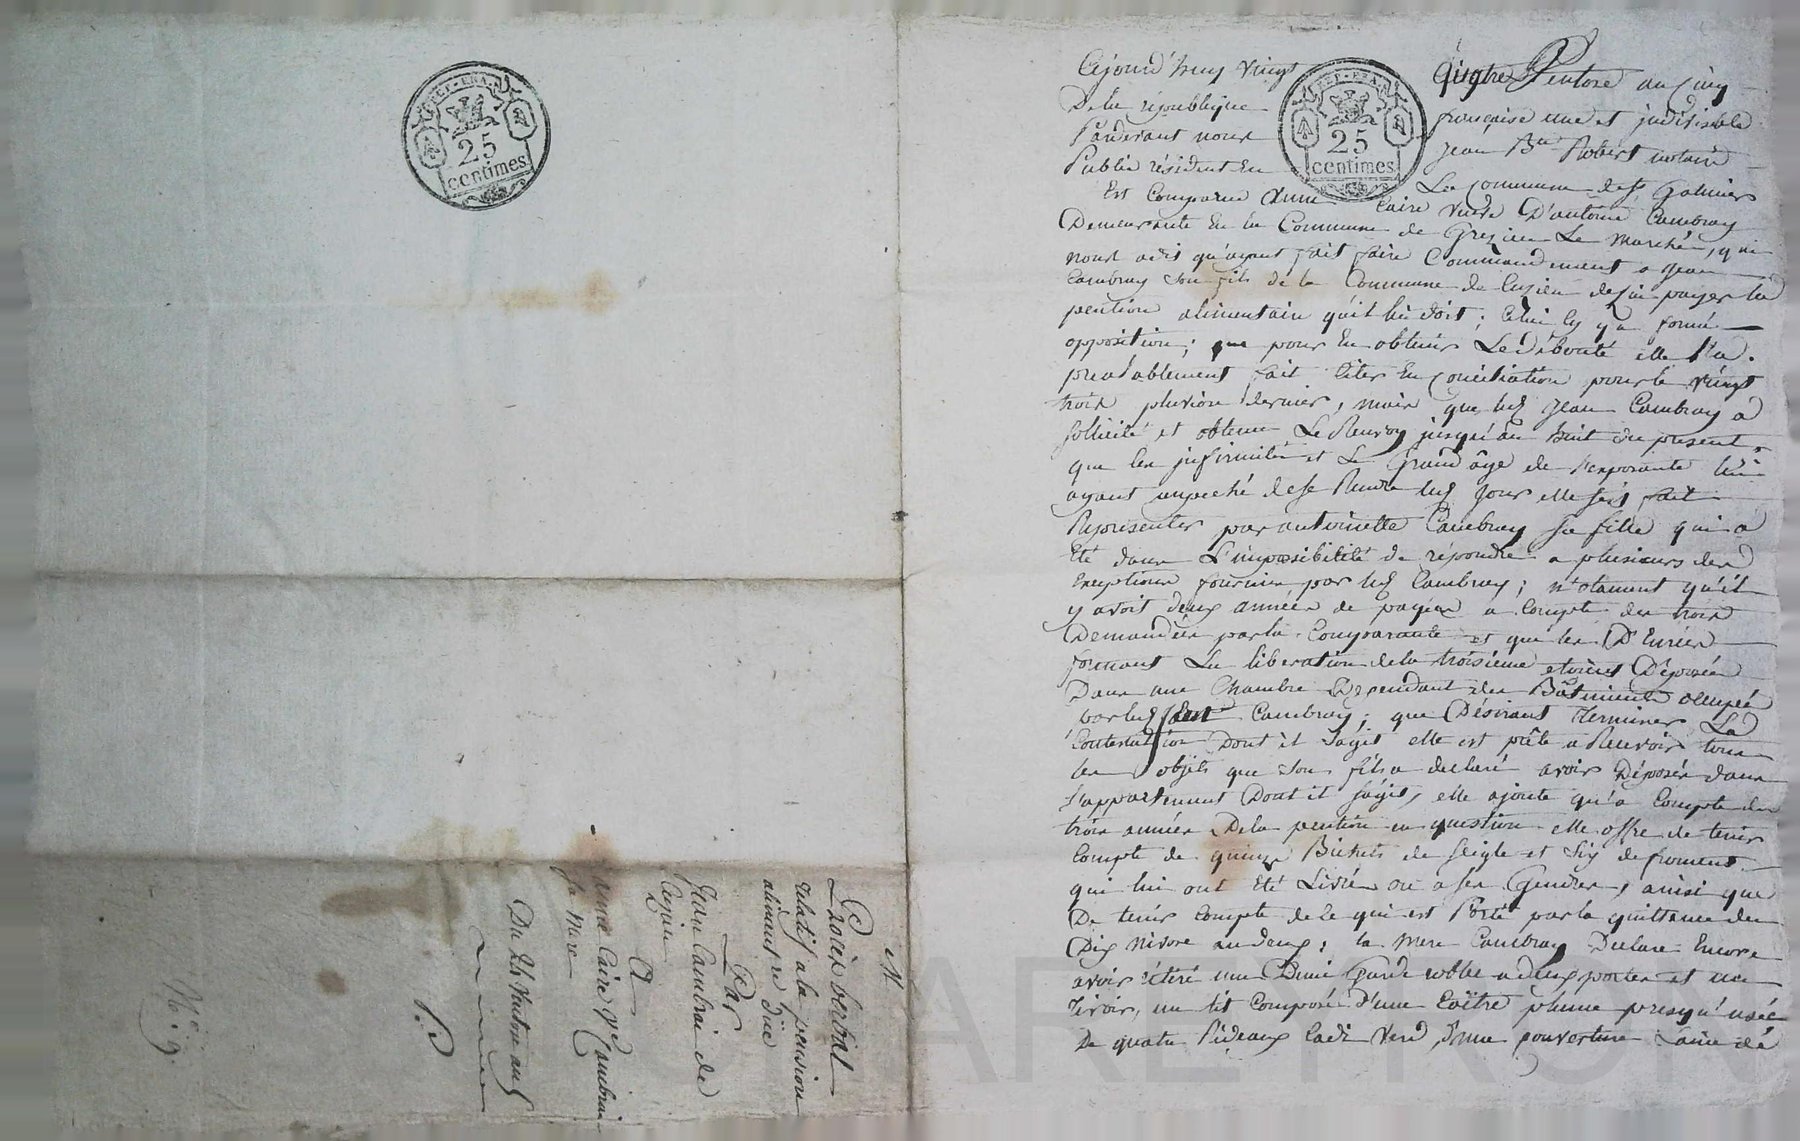 REP. FRA.
25
centimes
N
Procès verbal
relatif a la pension
alimentre düe
Par
Jean Cambrai de
Cezieu
A
anne Caire ve Cambrai
sa mere
Du 24 Ventose an 5
No. 9.
REP. FRA.
25
centimes
Cejourd'huy vingt quatre Ventose an cinq
De la république française une et indivisible
Pardevant nous Jean Bte Robert notaire
Public résident en La commune de St Galmier
Est Comparue Anne Caire veuve D'antoine Cambray
Demeurante En la Commune de Grezieu Le Marché, qui
nous a dit qu'ayant fait faire Commandement a Jean
Cambray son fils de la Commune de Cuzieu de lui payer la
pention alimentaire qu'il lui doit; Celui cy y a formé
opposition; que pour En obtenir Le débouté elle l'a
prealablement fait Citer En conciliation pour le vingt
trois pluviose dernier, mais que led Jean Cambray a
sollicité et obtenu Le Renvoy jusqu'au huit du present
que les infirmités et Le Grand âge de l'exposante lui
ayant empeché de se Rendre led jour elle s'est fait
Représenter par antoinette Cambray sa fille qui a
Eté dans L'impossibilité de répondre a plusieurs des
Exeptions fournies par led Cambray; n'otament qu'il
y avoit deux années de payées a Compte des trois
Demandées par la Comparante et que les D'Enrées
formant La liberation de la troisieme etoient Déposées
Dans une Chambre Dependant des Bâtiments occupés
par led Jean Cambray; que Désirant Terminer La
Contestation Dont il s'agit elle est prête a Recevoir tous
les objets que son fils a declaré avoir Déposés dans
l'appartement Dont il s'agit, elle ajoute qu'a Compte des
trois années De la pention en question elle offre de tenir
Compte de quinze Bichets de seigle et six de froment
qui lui ont Eté Livrés ou a ses Gendres, ainsi que
De tenir Compte de Ce qui est Porté par la quittance du
Dix Nivose an deux; la mere Cambray Declare Encore
avoir rétiré une Demi Garde robbe a deux portes et un
Tiroir, un lit Composé d'une Coëtre plume presqu'usée
De quatre Rideaux Cadi Verd, d'une couverture Laine de
CHAREYRON